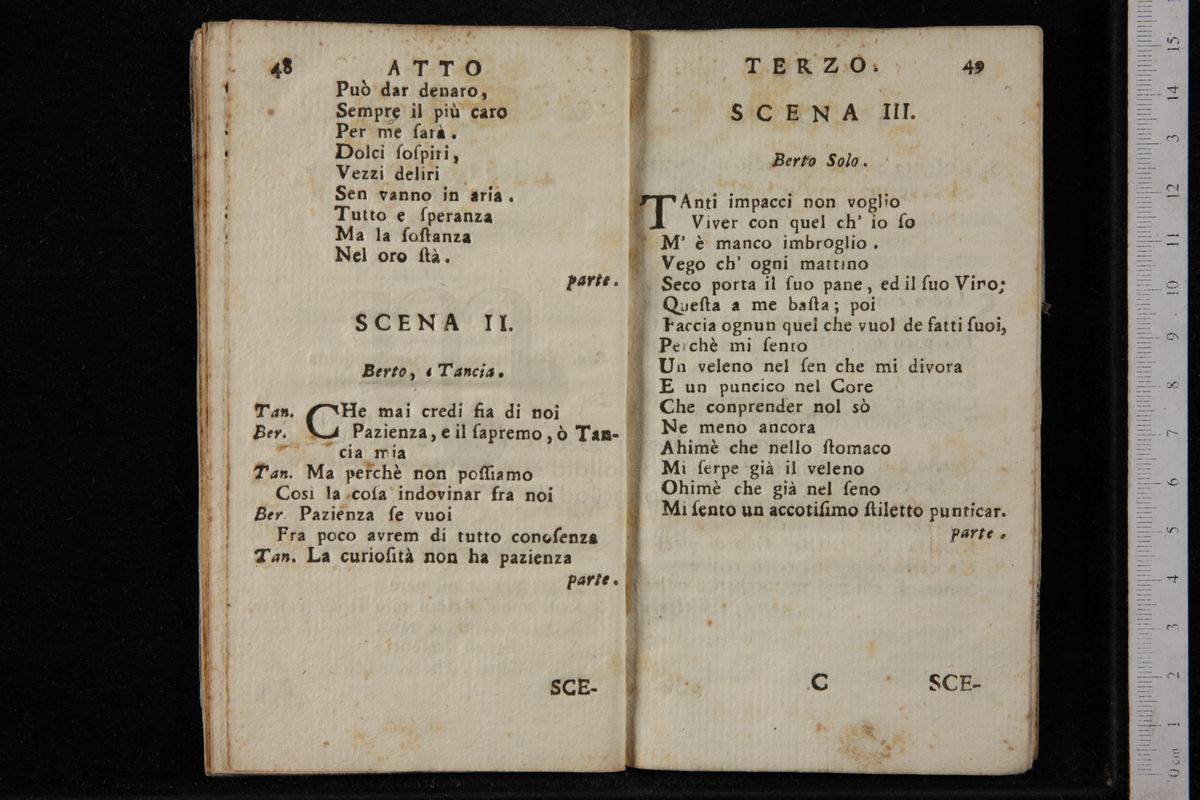 48 ATTO
Può dar denaro,
Sempre il più caro
Per me ſarà.
Dolci ſoſpiri,
Vezzi deliri
Sen vanno in aria.
Tutto e ſperanza
Ma la ſoſtanza
Nel oro ſtà.
parte.
SCENA II.
Berto, e Tancia.
Tan. CHe mai credi ſia di noi
Ber. Pazienza, e il ſapremo, ò Tan-
cia mia
Tan. Ma perchè non poſſiamo
Così la coſa indovinar fra noi
Ber. Pazienza ſe vuoi
Fra poco avrem di tutto conoſenza
Tan. La curioſità non ha pazienza
parte.
SCE-
TERZO. 49
SCENA III.
Berto Solo.
TAnti impacci non voglio
Viver con quel ch' io ſo
M' è manco imbroglio.
Vego ch' ogni mattino
Seco porta il ſuo pane, ed il ſuo Vino;
Queſta a me baſta; poi
Faccia ognun quel che vuol de fatti ſuoi,
Perchè mi ſento
Un veleno nel ſen che mi divora
E un puncico nel Core
Che conprender nol sò
Ne meno ancora
Ahimè che nello ſtomaco
Mi ſerpe già il veleno
Ohimè che già nel ſeno
Mi ſento un accotiſimo ſtiletto punticar.
parte.
C SCE-
0 cm 1 2 3 4 5 6 7 8 9 10 11 12 13 14 15